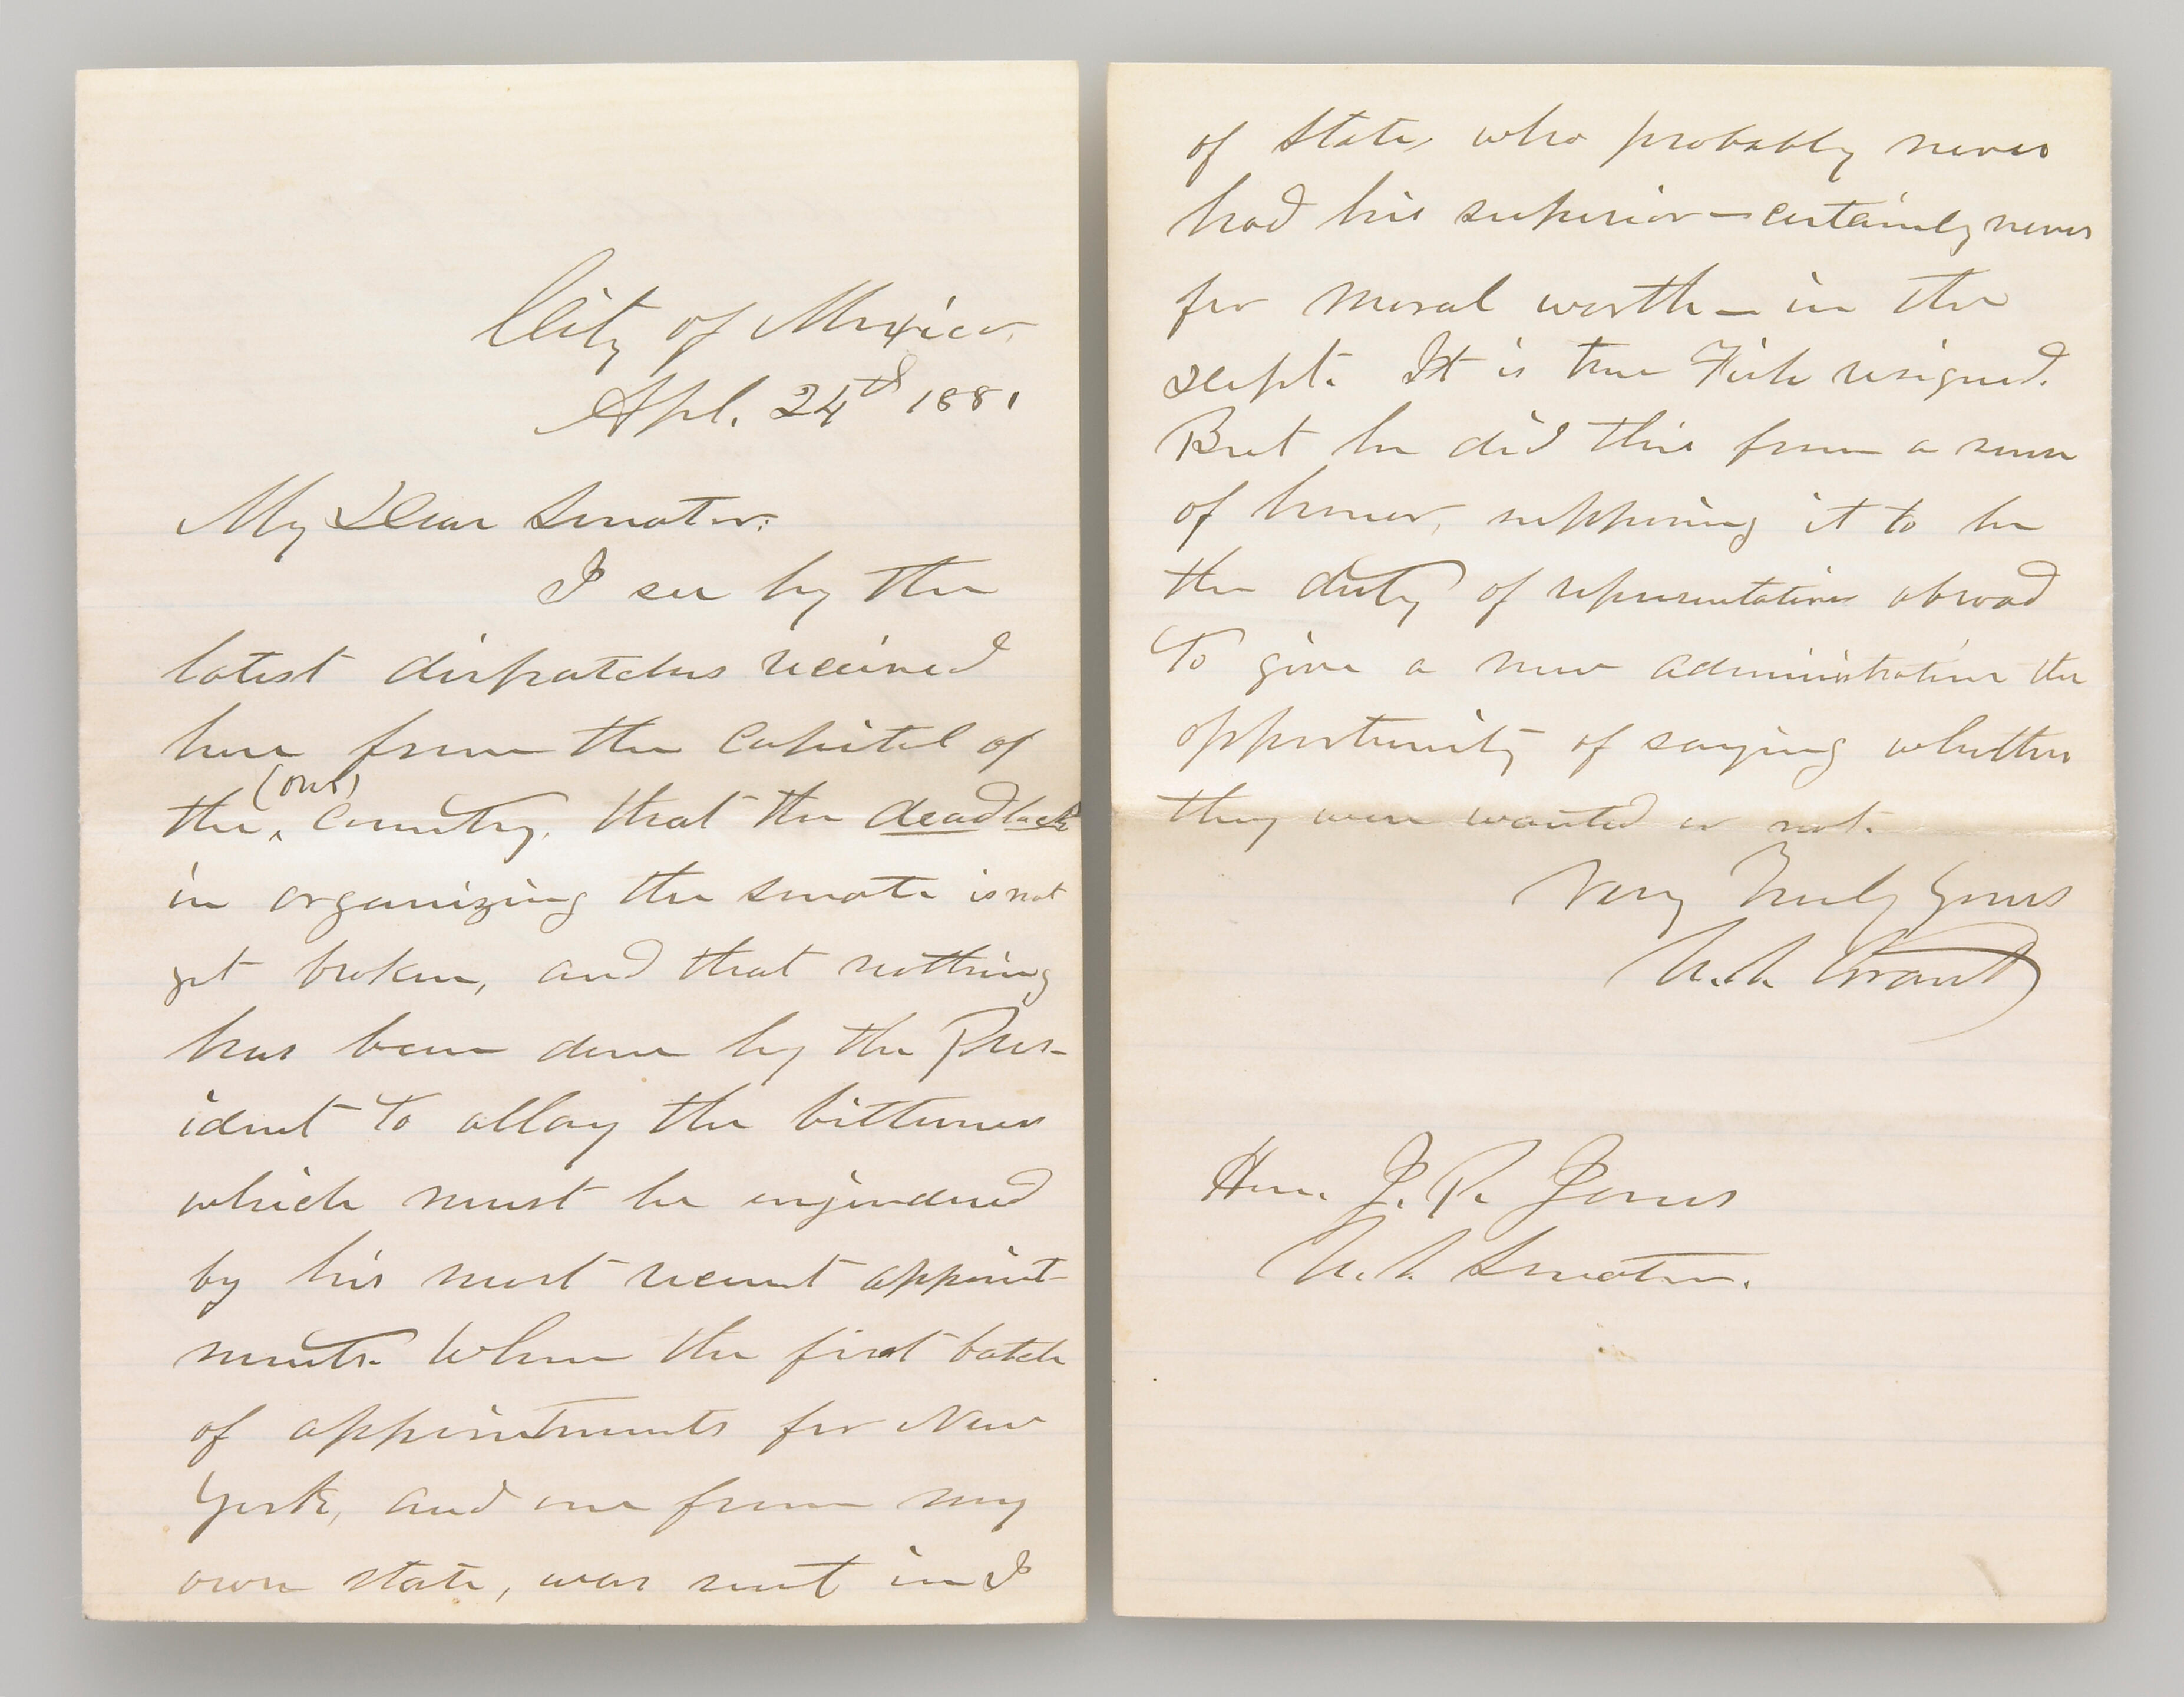 City of Mexico.
Apl. 24th 1881
My Dear Senator:
I see by the
latest dispatches received
here from the Capitol of
(our)
the, Country, that the deadlock
in organizing the senate is not
yet broken, and that nothing
has been done by the Pres-
ident to allay the bitterness
which must be enjendered
by his most recent appoint-
ments. When the first batch
of appointments for New
York, and one from my
own state, was sent in I
of State, who probably never
had his superior—certainly never
for moral worth—in the
Dept. It is true Fish resigned.
But he did this from a sense
of honor, supposing it to be
the duty of representatives abroad
to give a new administration the
opportunity of saying whether
they were wanted or not.
Very Truly Yours
U.S. Grant
Hon. J. P. Jones
U.S. Senator.